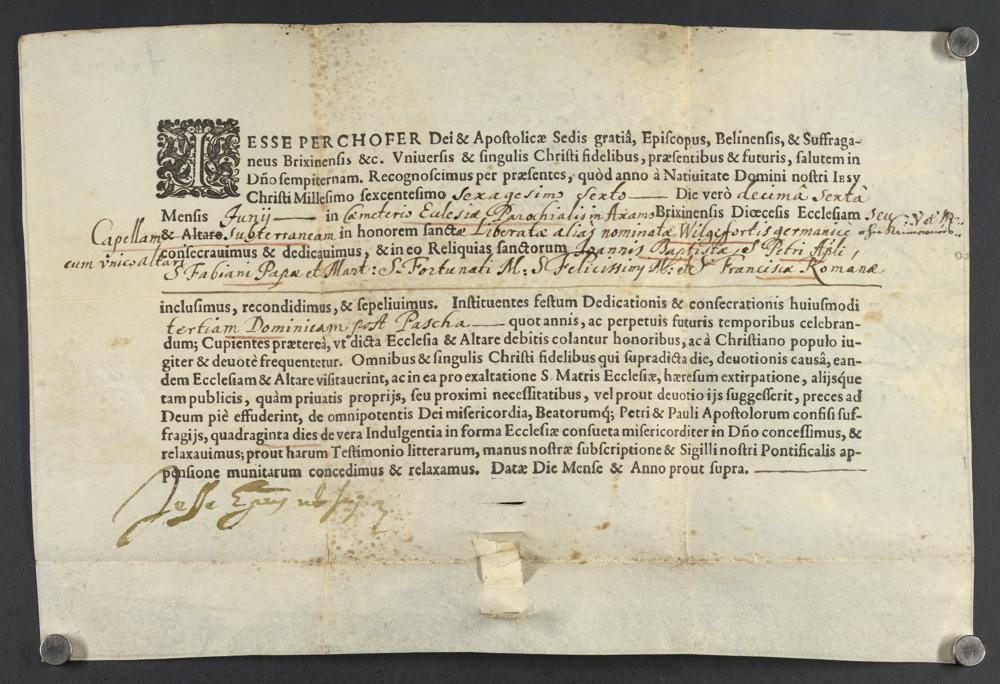 IESSE PERCHOFER Dei & Apostolicæ Sedis gratiâ, Episcopus, Belinensis, & Suffraga-
neus Brixinensis &c. Vniuersis & singulis Christi fidelibus, præsentibus & futuris, salutem in
Dño sempiternam. Recognoscimus per præsentes, quòd anno à Natiuitate Domini nostri IESV
Christi Millesimo sexcentesimo Sexagesimo Sexto Die verò decimâ Sextâ
Mensis Junij in Cœmeterio Eclesiæ Parochialis in Axams Brixinensis Diœcesis Ecclesiam seu
Capellam & Altare subterraneam in honorem sanctæ Liberatæ alias nominatæ Wilgefortis germanice
cum vnico altari consecrauimus & dedicauimus, & in eo Reliquias sanctorum Joannis Baptistæ S Petri Apli,
S Fabiani Papæ et Mart: S. Fortunati M: S Felicissimj M: et S Franciscæ Romanæ
inclusimus, recondidimus, & sepeliuimus. Instituentes festum Dedicationis & consecrationis huiusmodi
tertiam Dominicam post Pascha quotannis, ac perpetuis futuris temporibus celebran-
dum; Cupientes prætereà, vt dicta Ecclesia & Altare debitis colantur honoribus, ac à Christiano populo iu-
giter & deuotè frequentetur. Omnibus & singulis Christi fidelibus qui supradicta die, deuotionis causâ, ean-
dem Ecclesiam & Altare visitauerint, ac in ea pro exaltatione S. Matris Ecclesiæ, hæresum extirpatione, alijsque
tam publicis, quàm priuatis proprijs, seu proximi necessitatibus, vel prout deuotio ijs suggesserit, preces ad
Deum piè effuderint, de omnipotentis Dei misericordia, Beatorumq; Petri & Pauli Apostolorum confisi suf-
fragijs, quadraginta dies de vera Indulgentia in forma Ecclesiæ consueta misericorditer in Dño concessimus, &
relaxauimus; prout harum Testimonio litterarum, manus nostræ subscriptione & Sigilli nostri Pontificalis ap-
pensione munitarum concedimus & relaxamus. Datæ Die Mense & Anno prout supra.
Jesse Epus